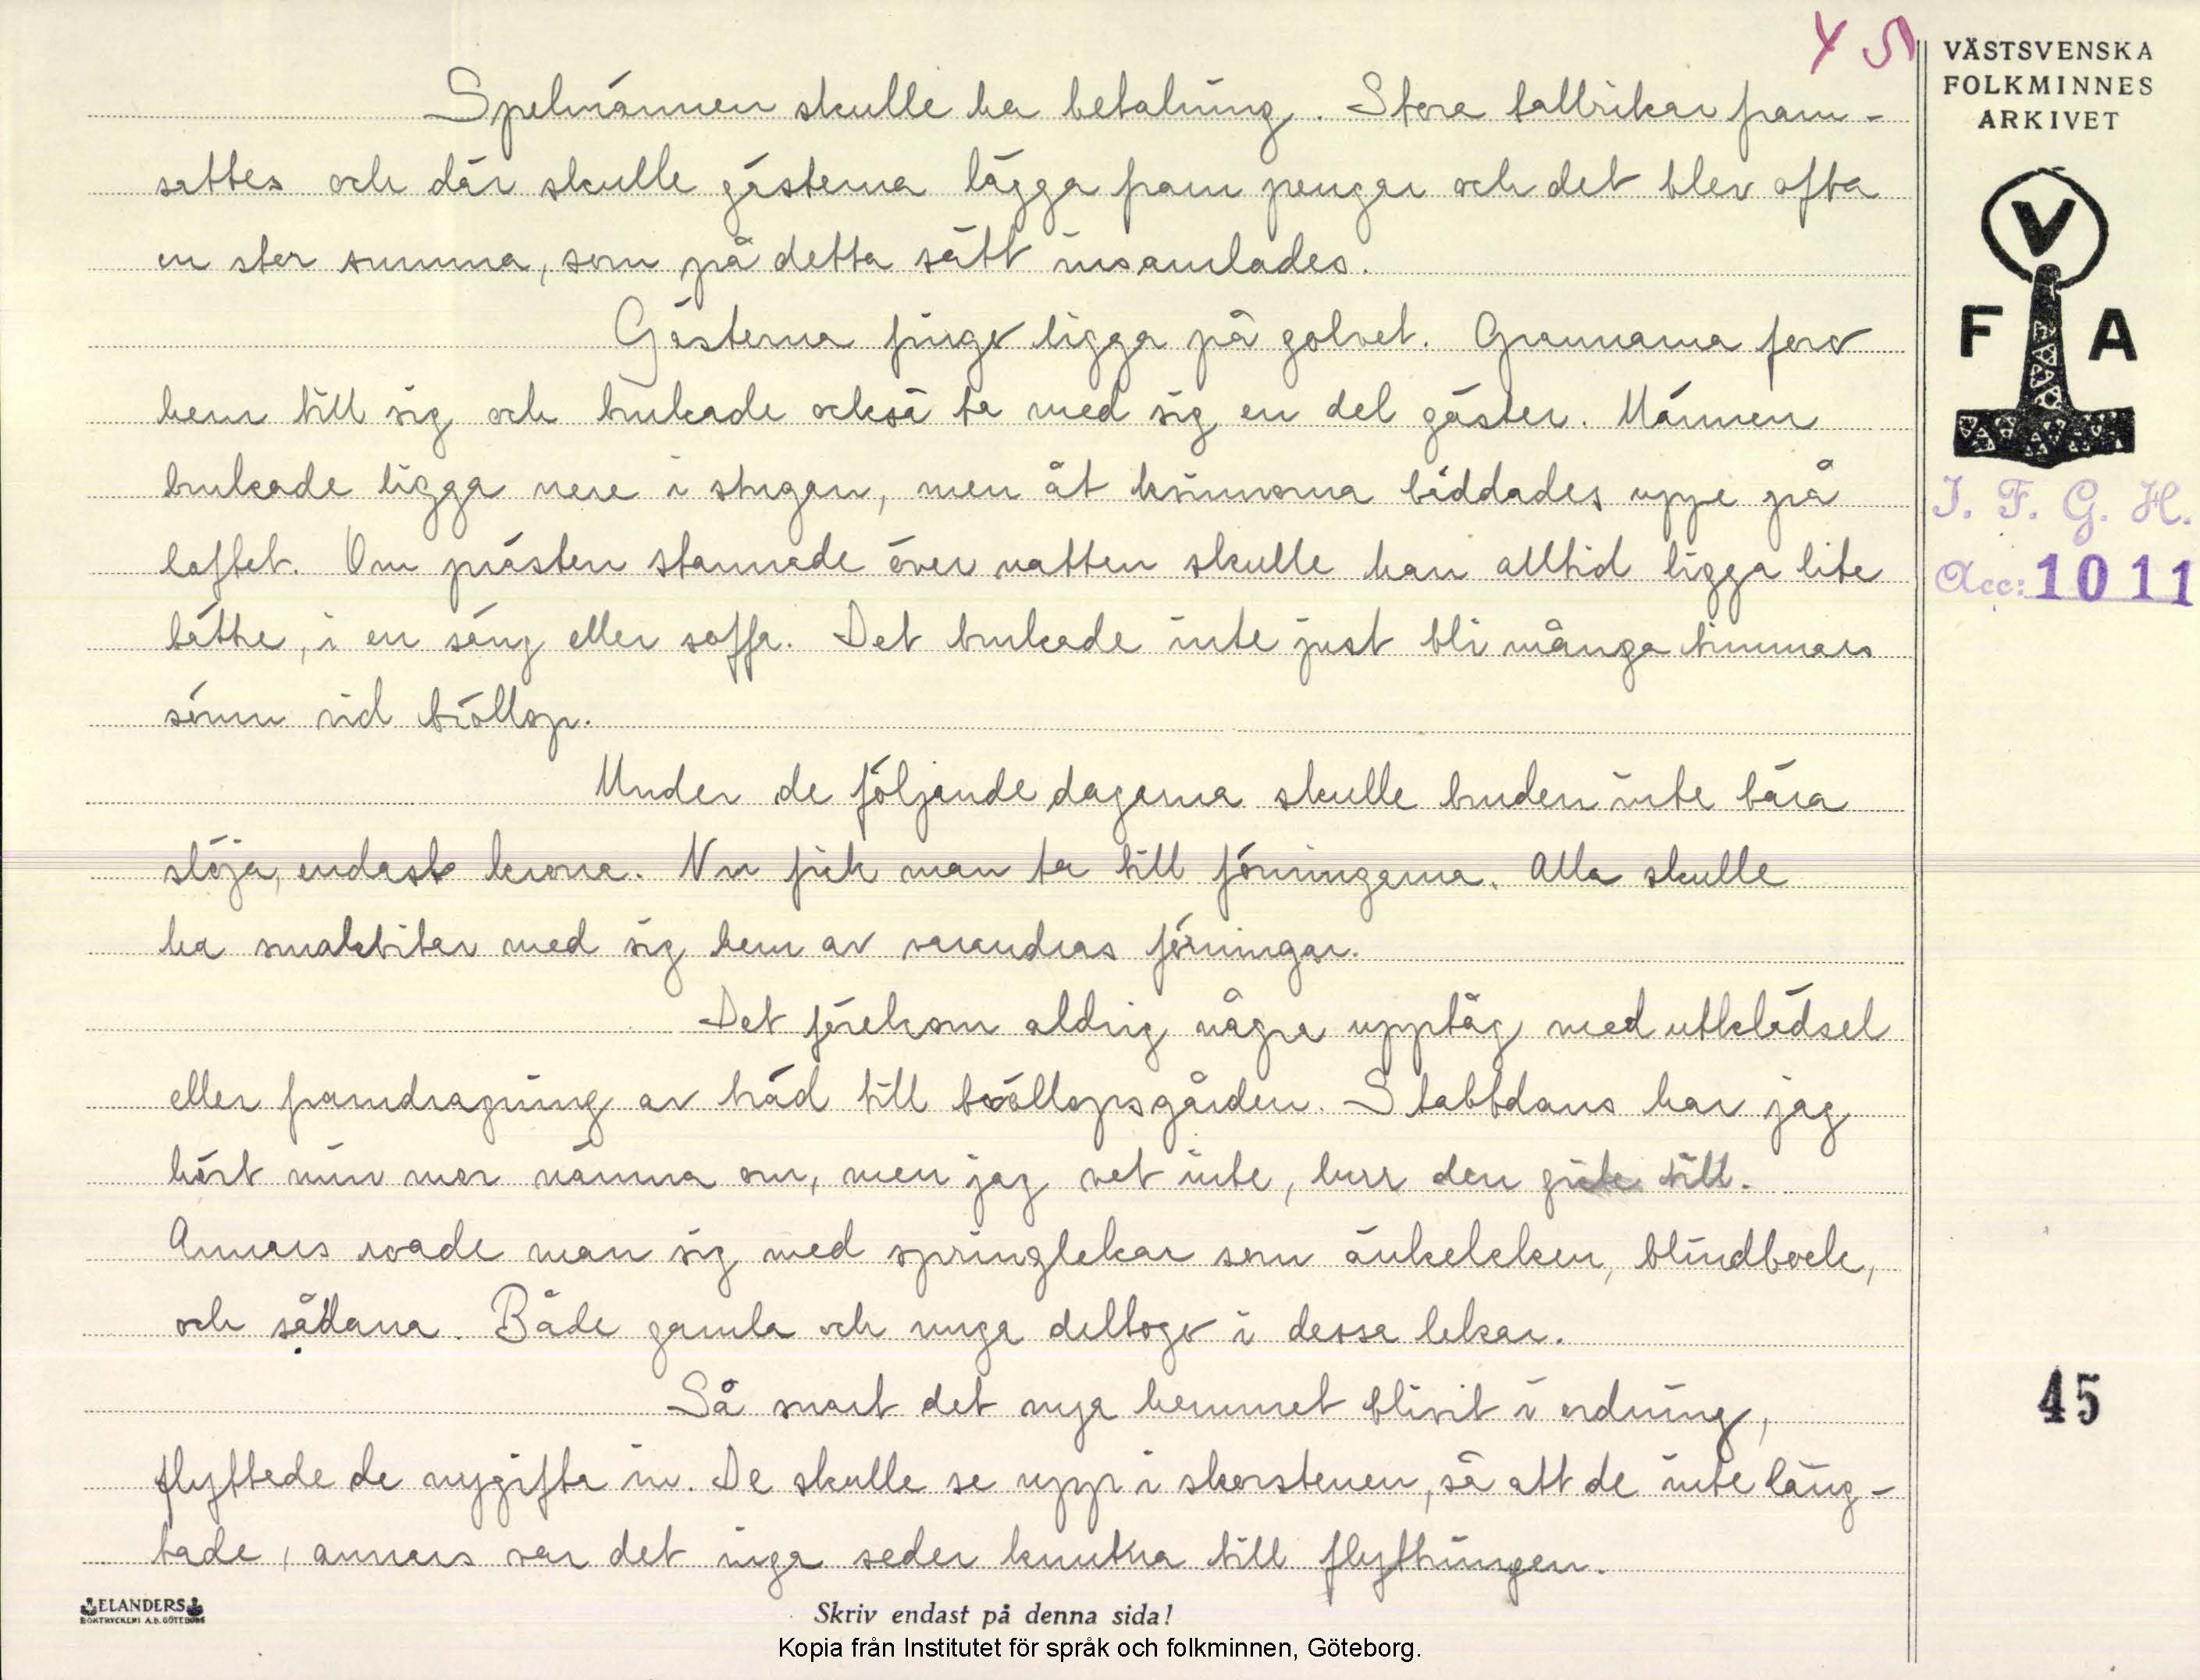 VÄSTSVENSKA
FOLKMINNES
ARKIVET
V
F A
I. F. G. H.
Acc: 1011
45
Spelmännen skulle ha betalning. Stora tallrikar fram-
sattes och där skulle gästerna lägga fram pengar och det blev ofta
en stor summa, som på detta sätt insamlades.
Gästerna fingo ligga på golvet. Grannarna foro
hem till sig och brukade också ta med sig en del gäster. Männen
brukade ligga nere i stugan, men åt kvinnorna bäddades uppe på
loftet. Om prästen stannade över natten skulle han alltid ligga lite
bättre, i en säng eller soffa. Det brukade inte just bli många timmars
sömn vid bröllop.
Under de följande dagarna skulle bruden inte bära
slöja, endast krona. Nu fick man ta till förningarna. Alla skulle
ha smakbitar med sig hem av varandras förningar.
Det förekom aldrig några upptåg med utklädsel
eller framdragning av träd till bröllopsgården. Stabbdans har jag
hört min mor nämna om, men jag vet inte, hur den gick till.
Annars roade man sig med springlekar som änkeleken, blindbock,
och sådana. Både gamla och unga deltogo i dessa lekar.
Så snart det nya hemmet blivit i ordning,
flyttade de nygifta in. De skulle se upp i skorstenen, så att de inte läng-
tade, annars var det inga seder knutna till flyttningen.
ELANDERS
BOKTRYCKERI A.B. GÖTEBORG
Skriv endast på denna sida!
Kopia från Institutet för språk och folkminnen, Göteborg.